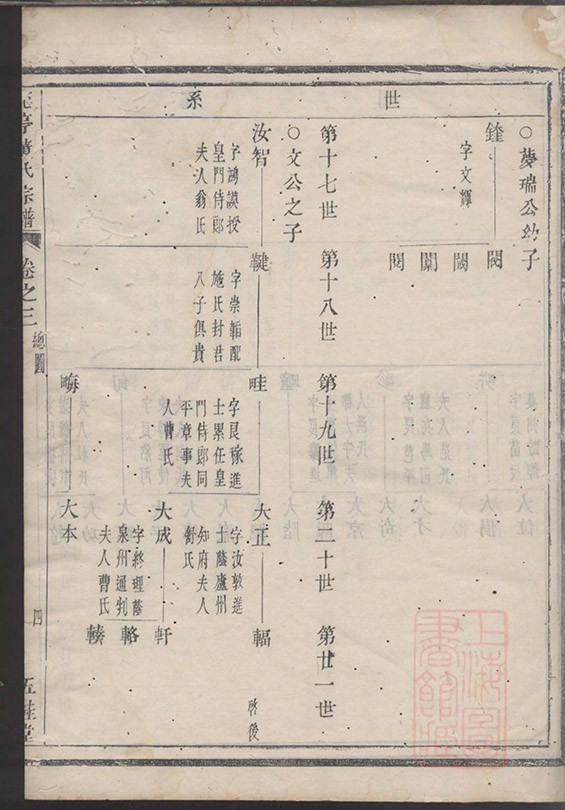 世系
○夢瑞公幼子
鏠
字文輝
閿
閾
闡
閱
第十七世
第十八世
第十九世
第二十世
第廿一世
○文公之子
汝智
字鴻謨授
皇門侍郎
夫人翁氏
鞬
字崇韜配
施氏封君
八子俱貴
畦
字艮稼進
士累任皇
門侍郎同
平章事夫
人曹氏
大正
字汝敦進
士蔭廬州
知府夫人
舒氏
輻
啓後
大成
字終理蔭
泉州通判
夫人曹氏
軒
輅
輳
畮
大本
氏宗譜
卷之三
總圖
四
五桂堂
上海圖書館藏